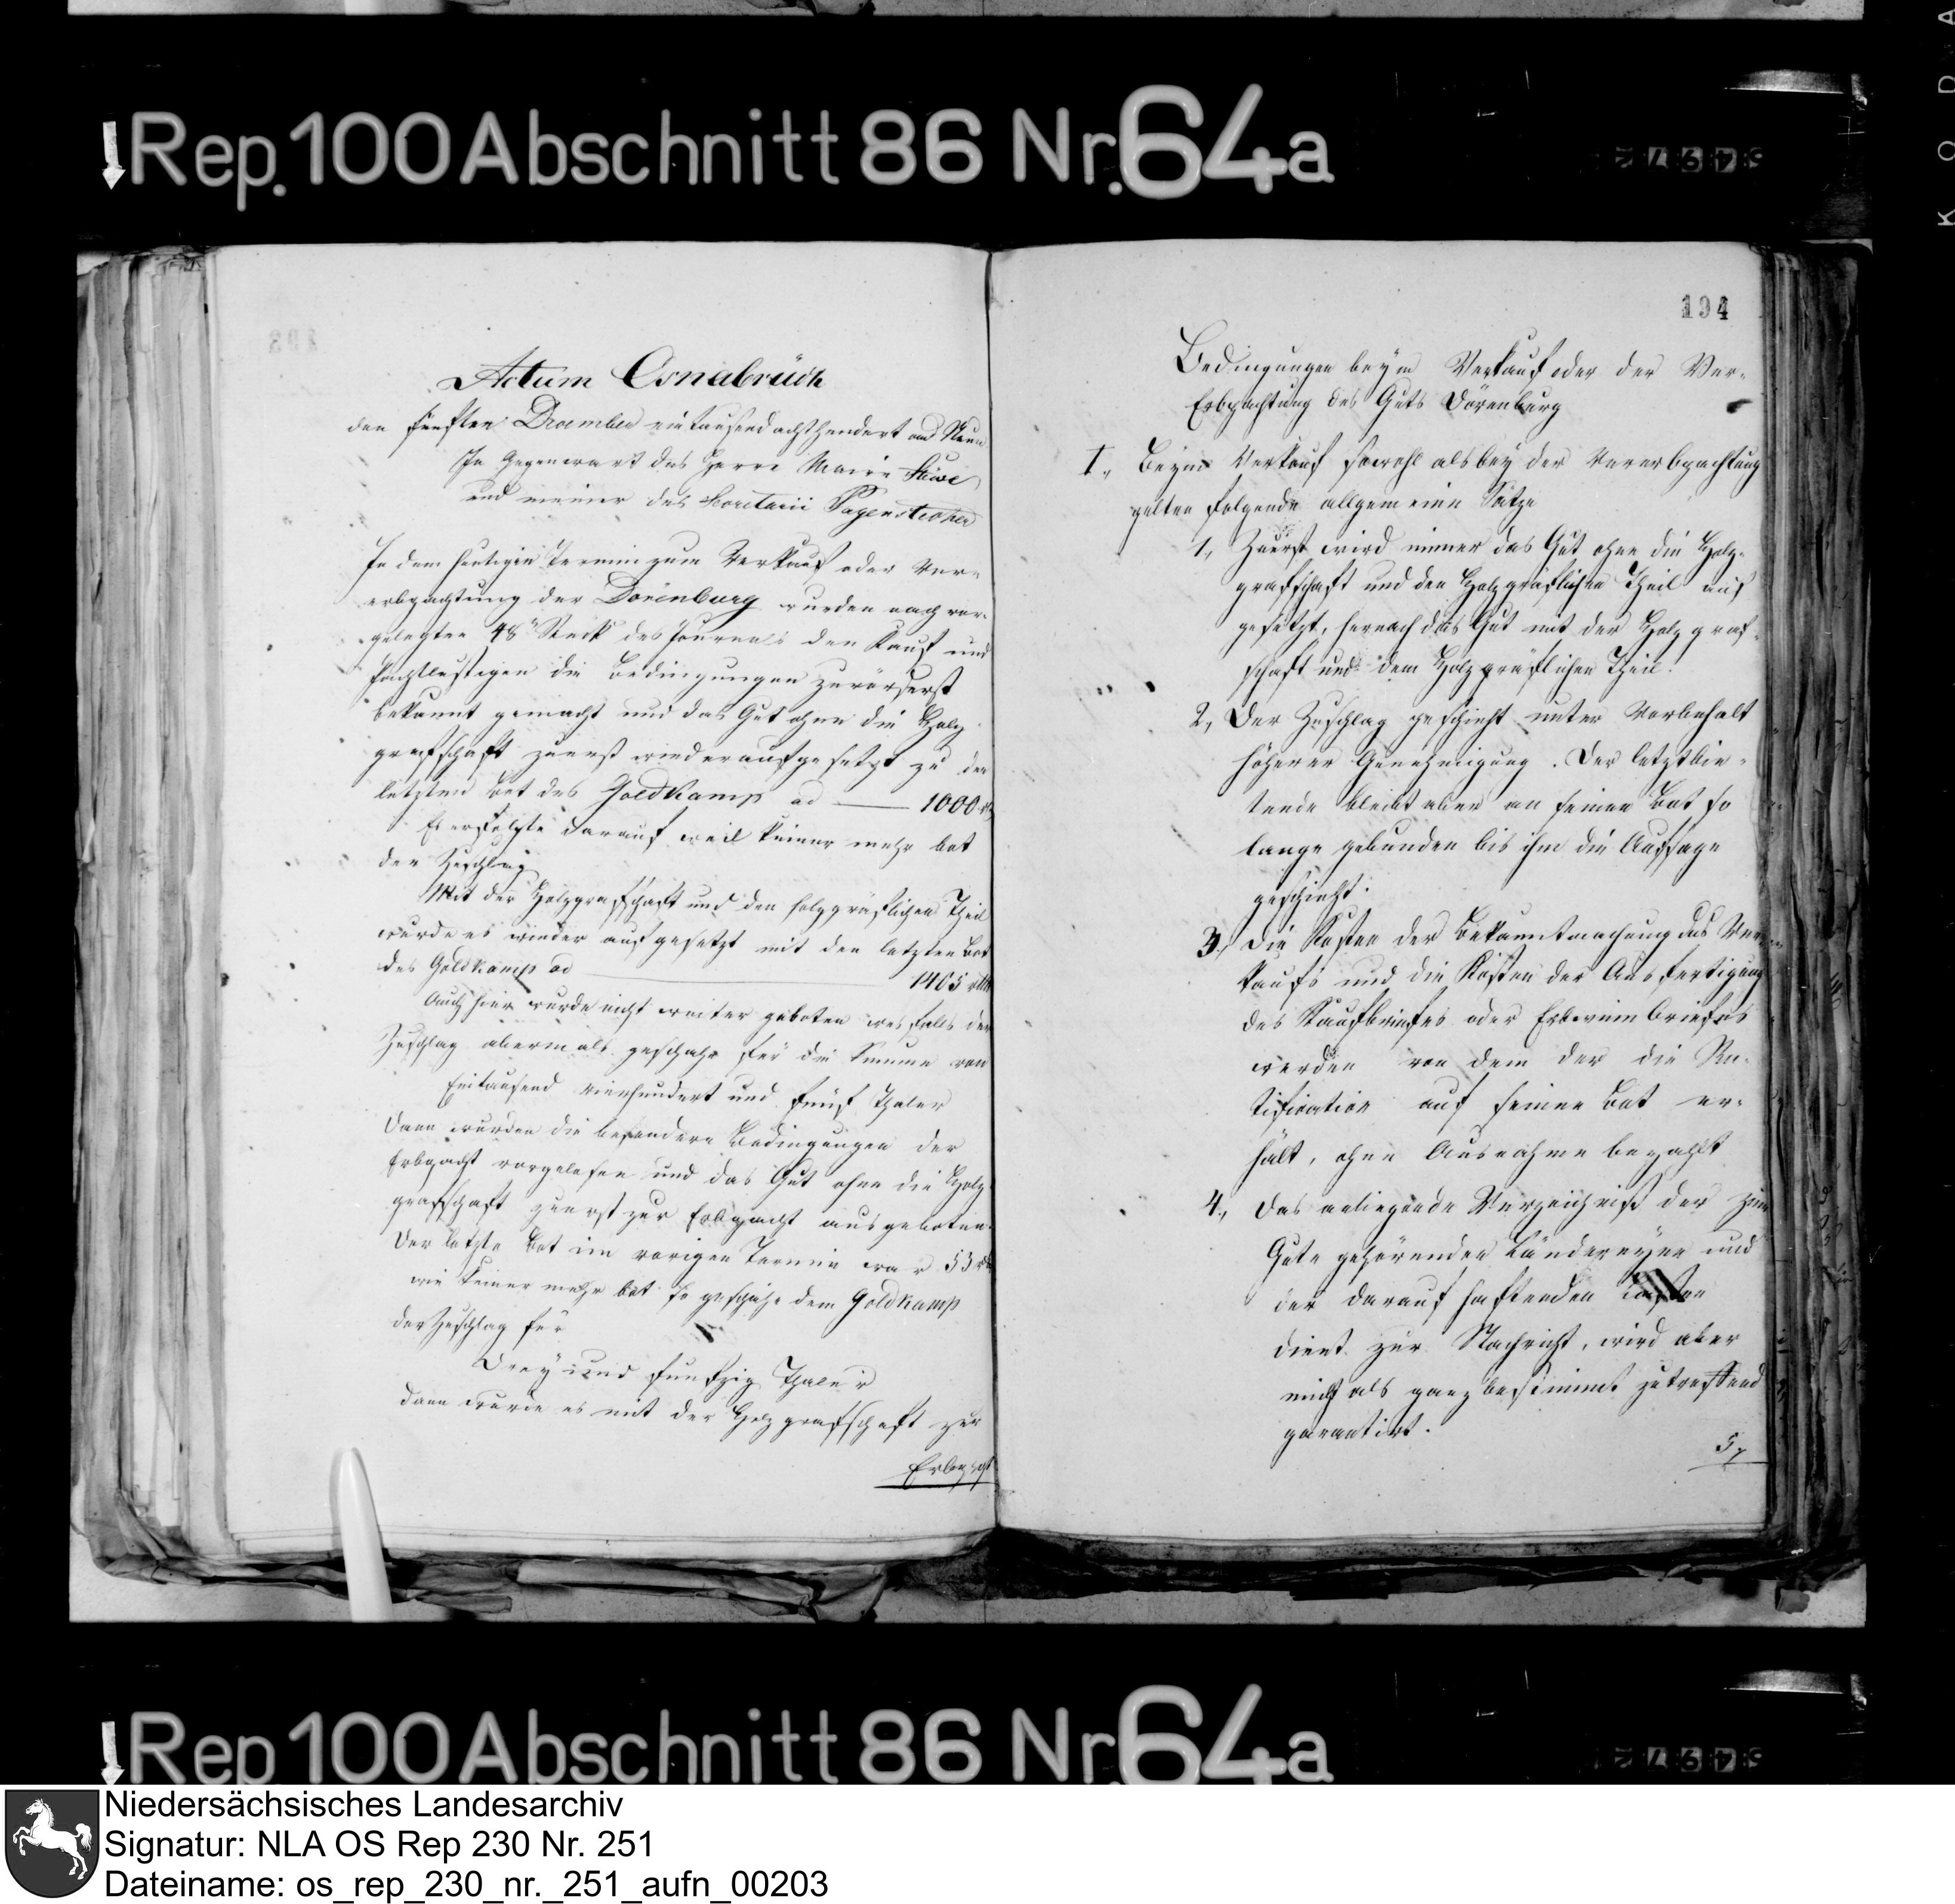 Rep. 100 Abschnitt 86 Nr. 64a
Actum Osnabrück
den fünften December eintausend achthundert und Neun
In Gegenwart des Herrn Maire Stüve,
und meiner des Secretarii Pagenstecher
In dem heutigen Termin zum Verkauf oder Ver-
erbpachtung der Dörenburg wurden nach vor-
gelegten 48n Stück des Journals den Kauf und
Pachtlustigen die Bedingungen zuvörderst
bekannt gemacht und das Gut ohne die Holz
grafschaft zuerst wieder aufgesetzt zu den
letzten Bot des Goldkamp ad — 1000 rt
Es erfolgte darauf weil keiner mehr bot
der Zuschlag
Mit der Holzgrafschaft und den holzgräflichen Theil
wurde es wieder aufgesetzt mit den letzten Bot
des Goldkamp ad — 1405 rth
Auch hier wurde nicht weiter geboten wesfalls der
Zuschlag abermals geschahe für die Summe von
Eintausend vierhundert und fünf Thaler
Dann wurden die besondere Bedingungen der
Erbpacht vorgelesen und das Gut ohne die Holz
grafschaft zuerst zur Erbpacht ausgeboten.
Der letzte Bot im vorigen Termin war 53 rt
wie keiner mehr bot so geschahe dem Goldkamp
der Zuschlag für
Drey und funfzig Thaler
dann wurde es mit der Holzgrafschaft zur
Erbpacht
194
Bedingungen beym Verkauf oder der Ver-
Erbpachtung des Guts Dörenburg
I., Beym Verkauf sowohl als bey der Vererbpachtung
gelten folgende allgemeine Sätze
1., Zuerst wird immer das Gut ohne die Holz-
grafschaft und den Holzgräflichen Theil auf
gesetzt, hernach das Gut mit der Holzgraf-
schaft und dem Holzgräflichen Theil.
2., Der Zuschlag geschieht unter Vorbehalt
höherer Genehmigung. Der letztbie-
tende bleibt aber an seinen Bot so
lange gebunden bis ihm die Aufsage
geschieht.
3., Die Kosten der Bekanntmachung des Ver-
kaufs und die Kosten der Ausfertigung
des Kaufbriefes oder Erbwinnbriefes
werden von dem der die Ra-
tification auf seinen Bot er-
hält, ohne Ausnahme bezahlt
4., Das anliegende Verzeichniß der zum
Gute gehörenden Ländereyen und
der darauf haftenden Lasten
dient zur Nachricht, wird aber
nicht als ganz bestimmt zutreffend
garantirt.
5.,
Rep 100 Abschnitt 86 Nr. 64a
Niedersächsisches Landesarchiv
Signatur: NLA OS Rep 230 Nr. 251
Dateiname: os_rep_230_nr._251_aufn_00203